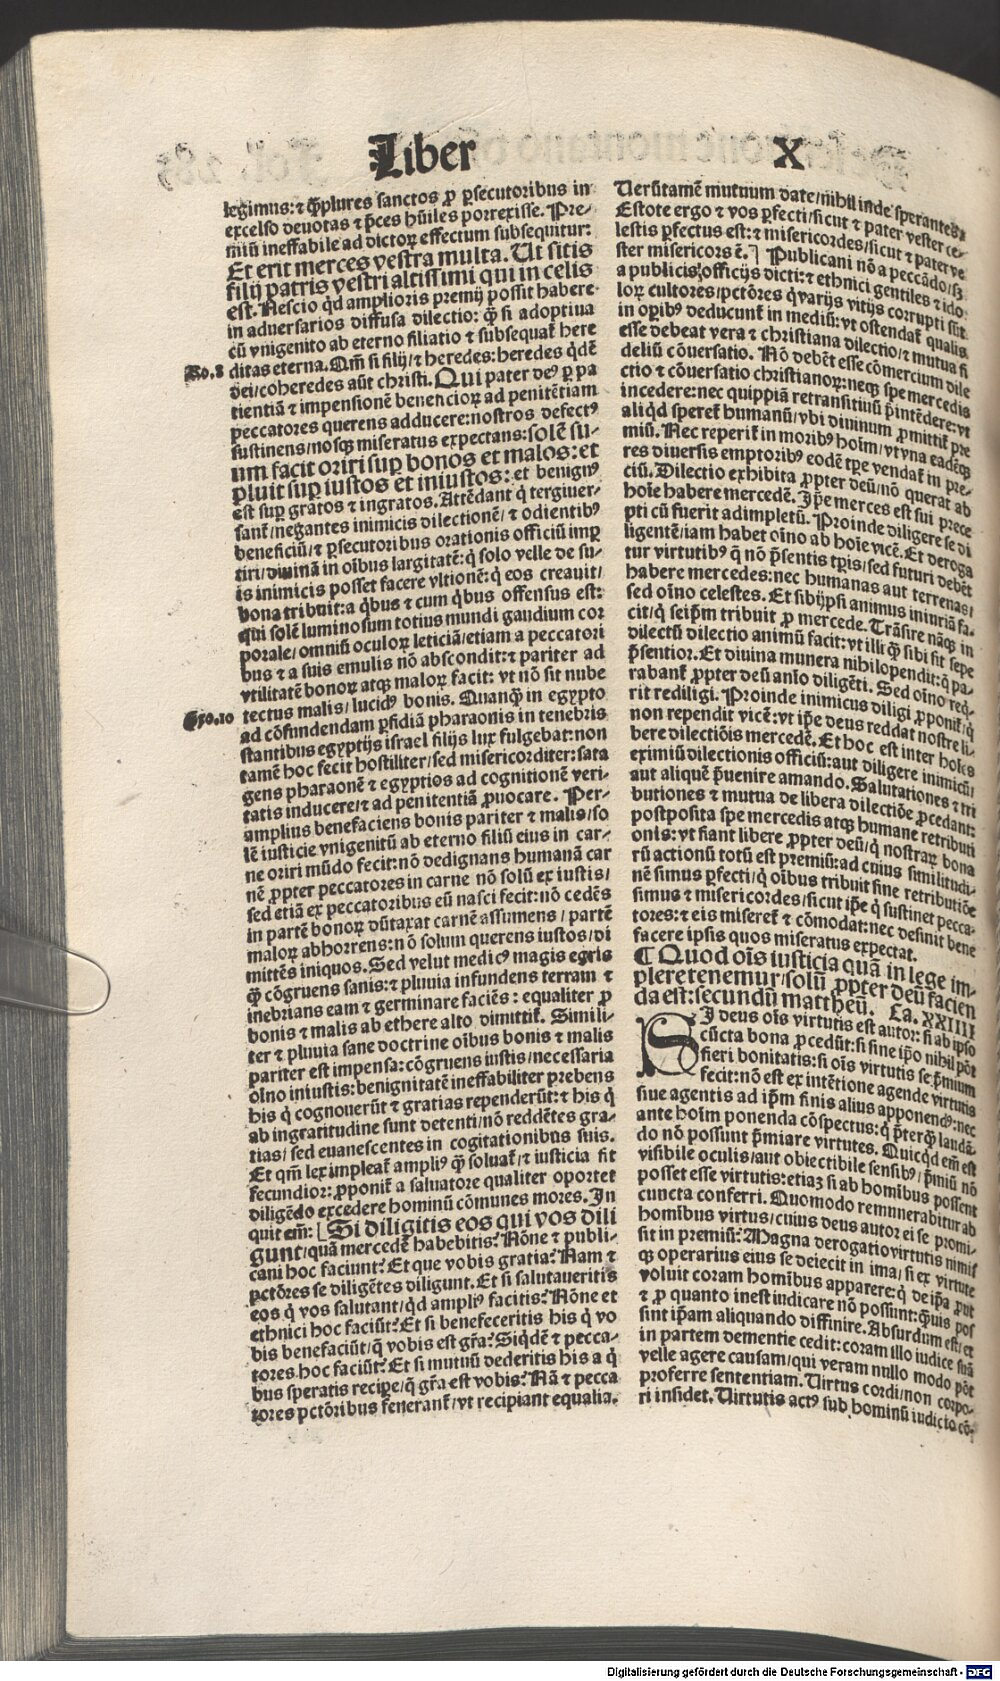 Liber X
legimus: ⁊ q̃plures sanctos ꝓ ꝑsecutoribus in
excelso deuotas ⁊ p̃ces hũiles porrexisse. Pre-
miũ ineffabile ad dictoꝝ effectum subsequitur:
Et erit merces vestra multa. Ut sitis
filij patris vestri altissimi qui in celis
est. Nescio qd̃ amplioris premij possit habere
in aduersarios diffusa dilectio: q̃ si adoptiua
cũ vnigenito ab eterno filiatio ⁊ subsequat᷑ here
Ro.8 ditas eterna. Qm̃ si filij/ ⁊ heredes: heredes qdẽ
dei/ coheredes aũt christi. Qui pater deꝰ ꝑ pa
tientiã ⁊ impensionẽ beneficioꝝ ad penitẽtiam
peccatores querens adducere: nostros defectꝰ
sustinens/ nosqꝫ miseratus expectans: solẽ su-
um facit oriri suꝑ bonos et malos: et
pluit suꝑ iustos et iniustos: et benignꝰ
est suꝑ gratos ⁊ ingratos. Attẽdant q̇ tergiuer-
sant᷑/ negantes inimicis dilectionẽ/ ⁊ odientibꝰ
beneficiũ/ ⁊ ꝑsecutoribus orationis officiũ imꝑ
tiri/ diuinã in oĩbus largitatẽ: q̇ solo velle de su-
is inimicis posset facere vltionẽ: q̇ eos creauit/
bona tribuit: a qbꝰ ⁊ cum qbꝰ offensus est:
qui solẽ luminosum totius mundi gaudium cor
porale/ omniũ oculoꝝ leticiã/ etiam a peccatori
bus ⁊ a suis emulis nõ abscondit: ⁊ pariter ad
vtilitatẽ bonoꝝ atqꝫ maloꝝ facit: vt nõ sit nube
Exo.10 tectus malis/ lucidꝰ bonis. Quanq̃ in egypto
ad cõfundendam ꝑfidiã pharaonis in tenebris
stantibus egyptijs israel filijs lux fulgebat: non
tamẽ hoc fecit hostiliter/ sed misericorditer: sata
gens pharaonẽ ⁊ egyptios ad cognitionẽ veri-
tatis inducere/ ⁊ ad penitentiã ꝓuocare. Per-
amplius benefaciens bonis pariter ⁊ malis/ so
lẽ iusticie vnigenitũ ab eterno filiũ eius in car-
ne oriri mũdo fecit: nõ dedignans humanã car
nẽ ꝓpter peccatores in carne nõ solũ ex iustis/
sed etiã ex peccatoribus eũ nasci fecit: nõ cedẽs
in partẽ bonoꝝ dũtaxat carnẽ assumens/ partẽ
maloꝝ abhorrens: nõ solum querens iustos/ di
mittẽs iniquos. Sed velut medicꝰ magis egris
q̃ cõgruens sanis: ⁊ pluuia infundens terram ⁊
inebrians eam ⁊ germinare faciẽs: equaliter ꝓ
bonis ⁊ malis ab ethere alto dimittit᷑. Simili-
ter ⁊ pluuia sane doctrine oĩbus bonis ⁊ malis
pariter est impensa: cõgruens iustis/ necessaria
oĩno iniustis: benignitatẽ ineffabiliter prebens
his q̇ cognouerũt ⁊ gratias rependerũt: ⁊ his q̇
ab ingratitudine sunt detenti/ nõ reddẽtes gra-
tias/ sed euanescentes in cogitationibus suis.
Et qm̃ lex impleat᷑ ampliꝰ q̃ soluat᷑/ ⁊ iusticia fit
fecundior: ꝓponit᷑ a saluatore qualiter oportet
diligẽdo excedere hominũ cõmunes mores. In
quit em̃: [Si diligitis eos qui vos dili
gunt/ quã mercedẽ habebitis? Nõne ⁊ publi-
cani hoc faciunt? Et que vobis gratia? Nam ⁊
pctõres se diligẽtes diligunt. Et si salutaueritis
eos q̇ vos salutant/ qd̃ ampliꝰ facitis? Nõne et
ethnici hoc faciũt? Et si benefeceritis his q̇ vo
bis benefaciũt/ q̃ vobis est gr̃a? Siqdẽ ⁊ pecca-
tores hoc faciũt? Et si mutuũ dederitis his a q̇
bus speratis recipe/ q̃ gr̃a est vobis? Nã ⁊ pecca
tores pctõribus fenerant᷑/ vt recipiant equalia.
Uerũtamẽ mutuum date/ nihil inde sperantes.
Estote ergo ⁊ vos ꝑfecti/ sicut ⁊ pater vester ce-
lestis ꝑfectus est: ⁊ misericordes/ sicut ⁊ pater ve
ster misericors ẽ.] Publicani nõ a peccãdo/ sꝫ
a publicis officijs dicti: ⁊ ethnici gentiles ⁊ ido-
loꝝ cultores/ pctõres q̇ varijs vitijs corrupti sũt
in oꝑibꝰ deducunt᷑ in mediũ: vt ostendat᷑ qualis
esse debeat vera ⁊ christiana dilectio/ ⁊ mutua fi
deliũ cõuersatio. Nõ debẽt esse cõmercium dile
ctio ⁊ cõuersatio christianoꝝ: neqꝫ spe mercedis
incedere: nec quippiã retransitiuũ p̃intẽdere: vt
aliqd̃ speret᷑ humanũ/ vbi diuinum ꝓmittit᷑ pre
miũ. Nec reperit᷑ in moribꝰ hoĩm/ vt vna eadẽqꝫ
res diuersis emptoribꝰ eodẽ tꝑe vendat᷑ in pre-
ciũ. Dilectio exhibita ꝓpter deũ/ nõ querat ab
hoĩe habere mercedẽ. Ip̃e merces est sui prece
pti cũ fuerit adimpletũ. Proinde diligere se di
ligentẽ/ iam habet oĩno ab hoĩe vicẽ. Et deroga
tur virtutibꝰ q̃ nõ p̃sentis tꝑis/ sed futuri debẽt
habere mercedes: nec humanas aut terrenas/
sed oĩno celestes. Et sibijpsi animus iniuriã fa-
cit/ q̇ seip̃m tribuit ꝓ mercede. Trãsire nãqꝫ in
dilectũ dilectio animũ facit: vt illi q̃ sibi sit sepe
p̃sentior. Et diuina munera nihilopendit: q̃ pa-
rabant᷑ ꝓpter deũ añlo diligẽti. Sed oĩno req̇-
rit rediligi. Proinde inimicus diligi ꝓponit᷑/ q̇
non rependit vicẽ: vt ip̃e deus reddat nostre li-
bere dilectiõis mercedẽ. Et hoc est inter hoĩes
eximiũ dilectionis officiũ: aut diligere inimicũ/
aut aliquẽ p̃uenire amando. Salutationes ⁊ tri
butiones ⁊ mutua de libera dilectiõe ꝓcedant:
postposita spe mercedis atqꝫ humane retributi
onis: vt fiant libere ꝓpter deũ/ q̇ nostraꝝ bona
rũ actionũ totũ est premiũ: ad cuius similitudi-
nẽ simus ꝑfecti/ q̇ oĩbus tribuit sine retributiõe
simus ⁊ misericordes/ sicut ip̃e q̇ sustinet pecca-
tores: ⁊ eis miseret᷑ ⁊ cõmodat: nec desinit bene
facere ipsis quos miseratus expectat.
¶ Quod oĩs iusticia quã in lege im-
plere tenemur/ solũ ꝓpter deũ facien
da est: secundũ mattheũ. Ca. XXIIII
SI deus oĩs virtutis est autor: si ab ipso
cũcta bona ꝓcedũt: si sine ip̃o nihil põt
fieri bonitatis: si oĩs virtutis se p̃mium
fecit: nõ est ex intẽtione agende virtutis
siue agentis ad ip̃m finis alius apponendꝰ: nec
ante hoĩm ponenda cõspectus: q̇ p̃terq̃ laudã-
do nõ possunt p̃miare virtutes. Quicqd̃ em̃ est
visibile oculis/ aut obiectibile sensibꝰ/ p̃miũ nõ
posset esse virtutis: etiaꝫ si ab homĩbus possent
cuncta conferri. Quomodo remunerabitur ab
homĩbus virtus/ cuius deus autor ei se promi-
sit in premiũ? Magna derogatio virtutis nimis
qꝫ operarius eius se deiecit in ima/ si ex virtute
voluit coram homĩbus apparere: q̇ de ip̃a ꝓut
⁊ ꝓ quanto inest iudicare nõ possunt: q̃uis pos
sint ip̃am aliquando diffinire. Absurdum est/ et
in partem dementie cedit: coram illo iudice suã
velle agere causam/ qui veram nullo modo põt
proferre sententiam. Uirtus cordi/ non corpo-
ri insidet. Uirtutis actꝰ sub hominũ iudicio cõ-
Digitalisierung gefördert durch die Deutsche Forschungsgemeinschaft - DFG